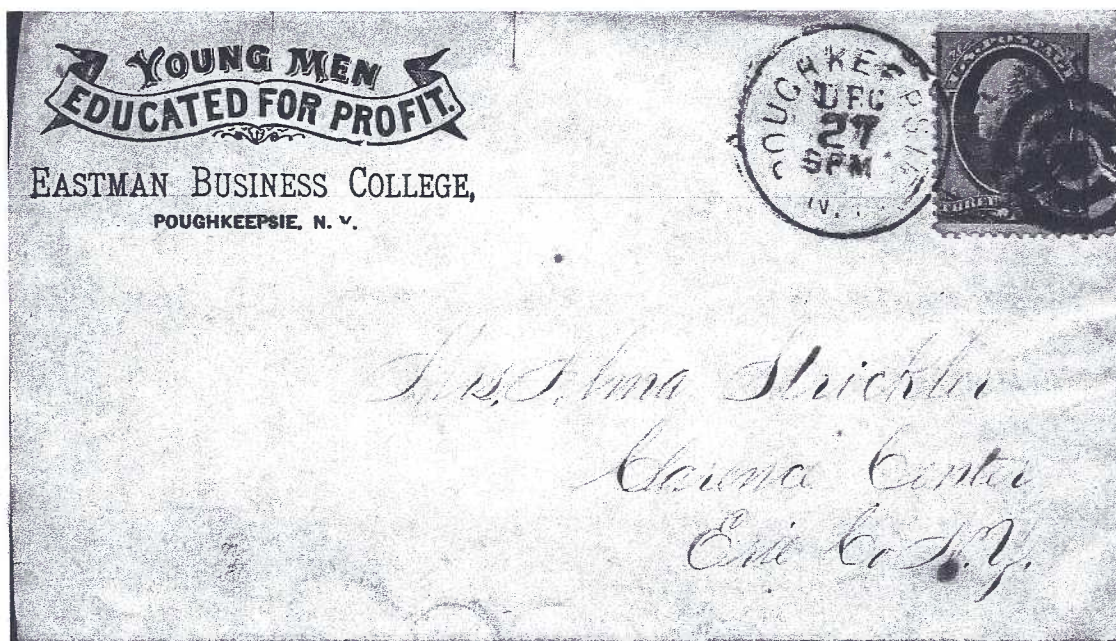 YOUNG MEN
EDUCATED FOR PROFIT.
EASTMAN BUSINESS COLLEGE,
POUGHKEEPSIE, N. Y.
POUGHKEEPSIE
DEC
27
6PM
N.Y.
U.S. POSTAGE
THREE
Alma Strickler
Clarence Center
Erie Co N.Y.